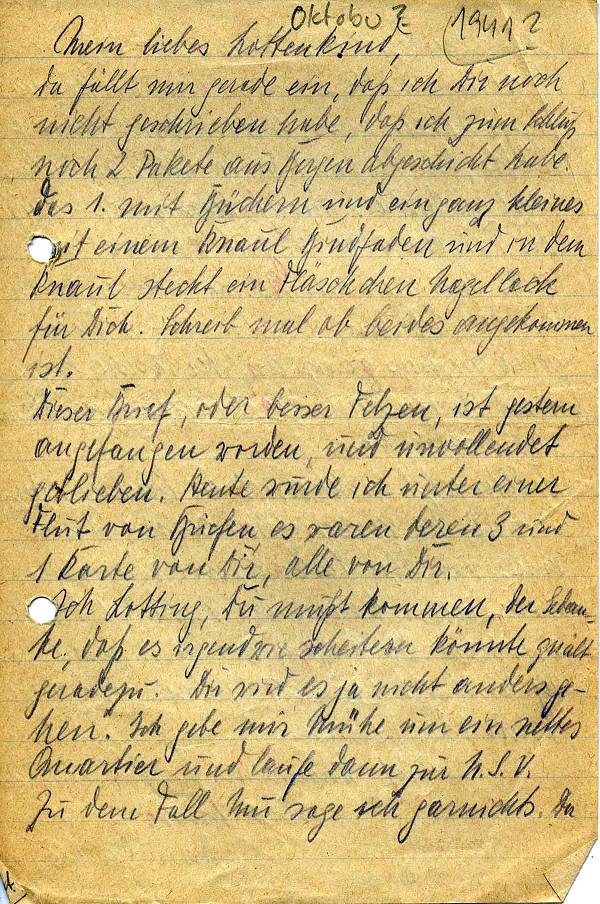 Oktober ? 1941 ?
Mein liebes Lottenkind,
da fällt mir gerade ein, daß ich Dir noch
nicht geschrieben habe, daß ich zum Schluß
noch 2 Pakete aus abgeschickt habe.
Das 1. mit Büchern und ein ganz kleines
mit einem Knaul Bindfaden und in dem
Knaul steckt ein Fläschchen Nagellack
für Dich. Schreib mal ob beides angekommen
ist.
Dieser Brief, oder besser Fetzen, ist gestern
angefangen worden, und unvollendet
geblieben. Heute wurde ich unter einer
Flut von Briefen es waren deren 3 und
1 Karte von Dir, alle von Dir.
Ach Lotting, Du mußt kommen, der Gedan-
ke, daß es irgendwie scheitern könnte quält
geradezu. Dir wird es ja nicht anders ge-
hen. Ich gebe mir Mühe um ein nettes
Quartier und laufe dann zur N.S.V.
Zu dem Fall sage ich garnichts. Da